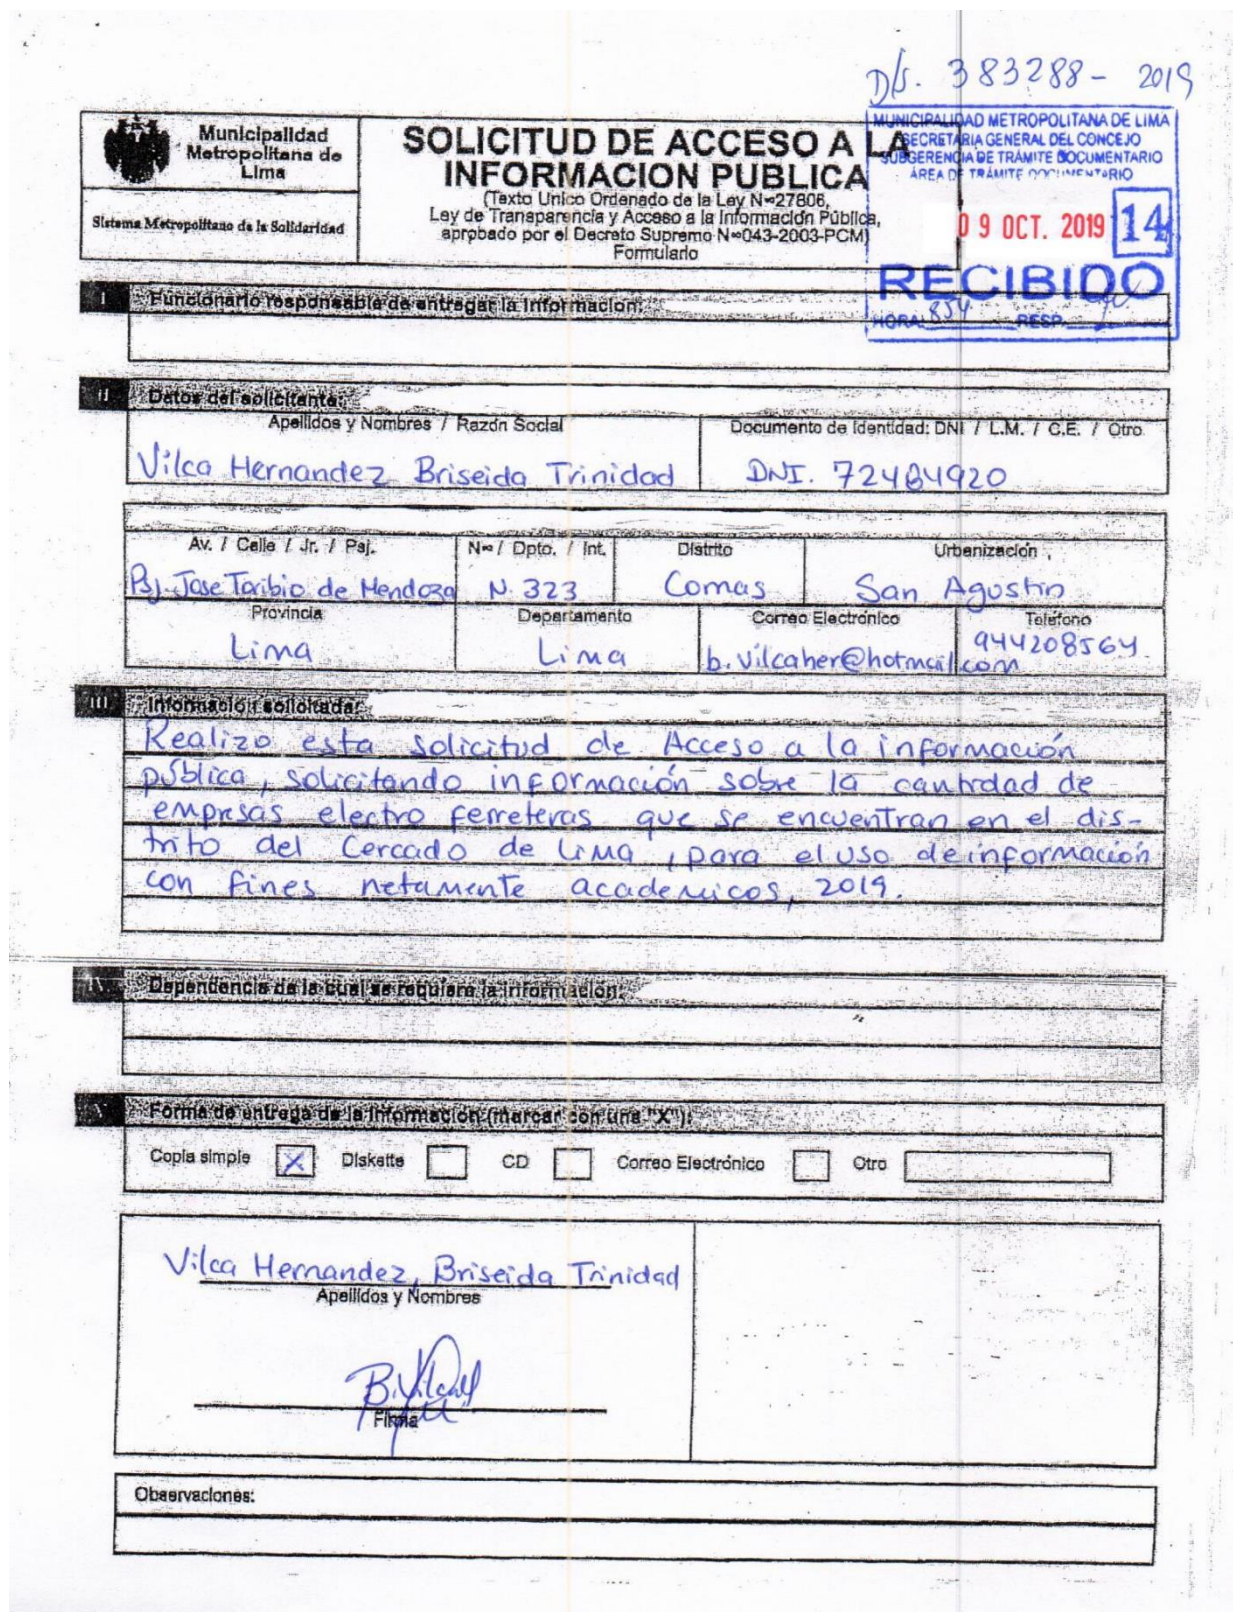 D/S. 383288- 2019
Municipalidad
Metropolitana de
Lima
Sistema Metropolitano de la Solidaridad
SOLICITUD DE ACCESO A LA
INFORMACION PUBLICA
(Texto Unico Ordenado de la Ley N°27806,
Ley de Transparencia y Acceso a la Información Pública,
aprobado por el Decreto Supremo N°043-2003-PCM)
Formulario
MUNICIPALIDAD METROPOLITANA DE LIMA
SECRETARIA GENERAL DEL CONCEJO
SUBGERENCIA DE TRÁMITE DOCUMENTARIO
ÁREA DE TRÁMITE DOCUMENTARIO
09 OCT. 2019 14
RECIBIDO
HORA: 854 RESP.
I Funcionario responsable de entregar la Informacion:
II Datos del solicitante:
Apellidos y Nombres / Razón Social Documento de Identidad: DNI / L.M. / C.E. / Otro
Vilca Hernandez Briseida Trinidad DNI.
Av. / Calle / Jr. / Psj. N° / Dpto. / Int. Distrito Urbanización
Psj. Jose Toribio de Mendoza N 323 Comas San Agustin
Provincia Departamento Correo Electrónico Teléfono
Lima Lima b.vilcaher@hotmail.com 944208564
III Información solicitada:
Realizo esta solicitud de Acceso a la información
pública, solicitando información sobre la cantidad de
empresas electro ferreteras que se encuentran en el dis-
trito del Cercado de Lima, para el uso de información
con fines netamente academicos, 2019.
IV Dependencia de la cual se requiere la información:
V Forma de entrega de la información (marcar con una "X"):
Copia simple X Diskette CD Correo Electrónico Otro
Vilca Hernandez, Briseida Trinidad
Apellidos y Nombres
Firma
Observaciones: